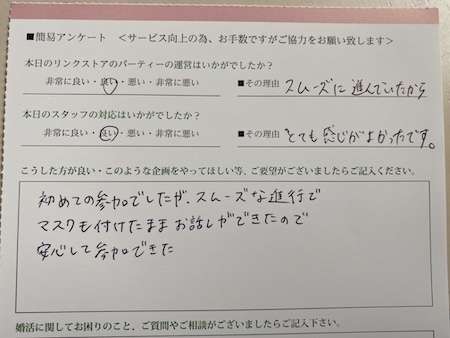 ■簡易アンケート ＜サービス向上の為、お手数ですがご協力をお願い致します＞
本日のリンクストアのパーティーの運営はいかがでしたか？
非常に良い・良い・悪い・非常に悪い ■その理由 スムーズに進んでいたから
本日のスタッフの対応はいかがでしたか？
非常に良い・良い・悪い・非常に悪い ■その理由 とても感じがよかったです。
こうした方が良い・このような企画をやってほしい等、ご要望がございましたらご記入ください。
初めての参加でしたが、スムーズな進行で
マスクも付けたままお話しができたので
安心して参加できた
婚活に関してお困りのこと、ご質問やご相談がございましたらご記入下さい。